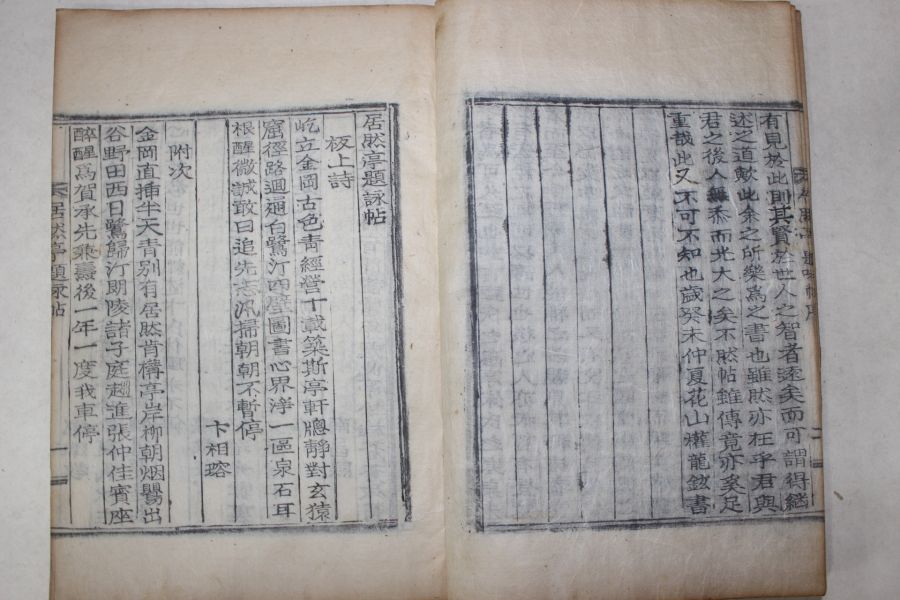 有見於此則其賢於世人之智者遠矣而可謂得繼
述之道歟此余之所樂爲之書也雖然亦在乎君與
君之後人無忝而光大之矣不然帖雖傳竟亦奚足
重哉此又不可不知也歲癸未仲夏花山權龍鈫書
居然亭題詠帖
板上詩
屹立金岡古色靑經營十載築斯亭軒牕靜對玄猿
窟徑路迴通白鷺汀四壁圖書心界淨一區泉石耳
根醒微誠敢曰追先志汛掃朝朝不暫停
卞相瑢
附次
金岡直揷半天青別有居然肯構亭岸柳朝烟鸎出
谷野田西日鷺歸汀期陵諸子庭趨進張仲佳賓座
醉醒爲賀承先兼壽後一年一度我車停
居然亭題詠帖